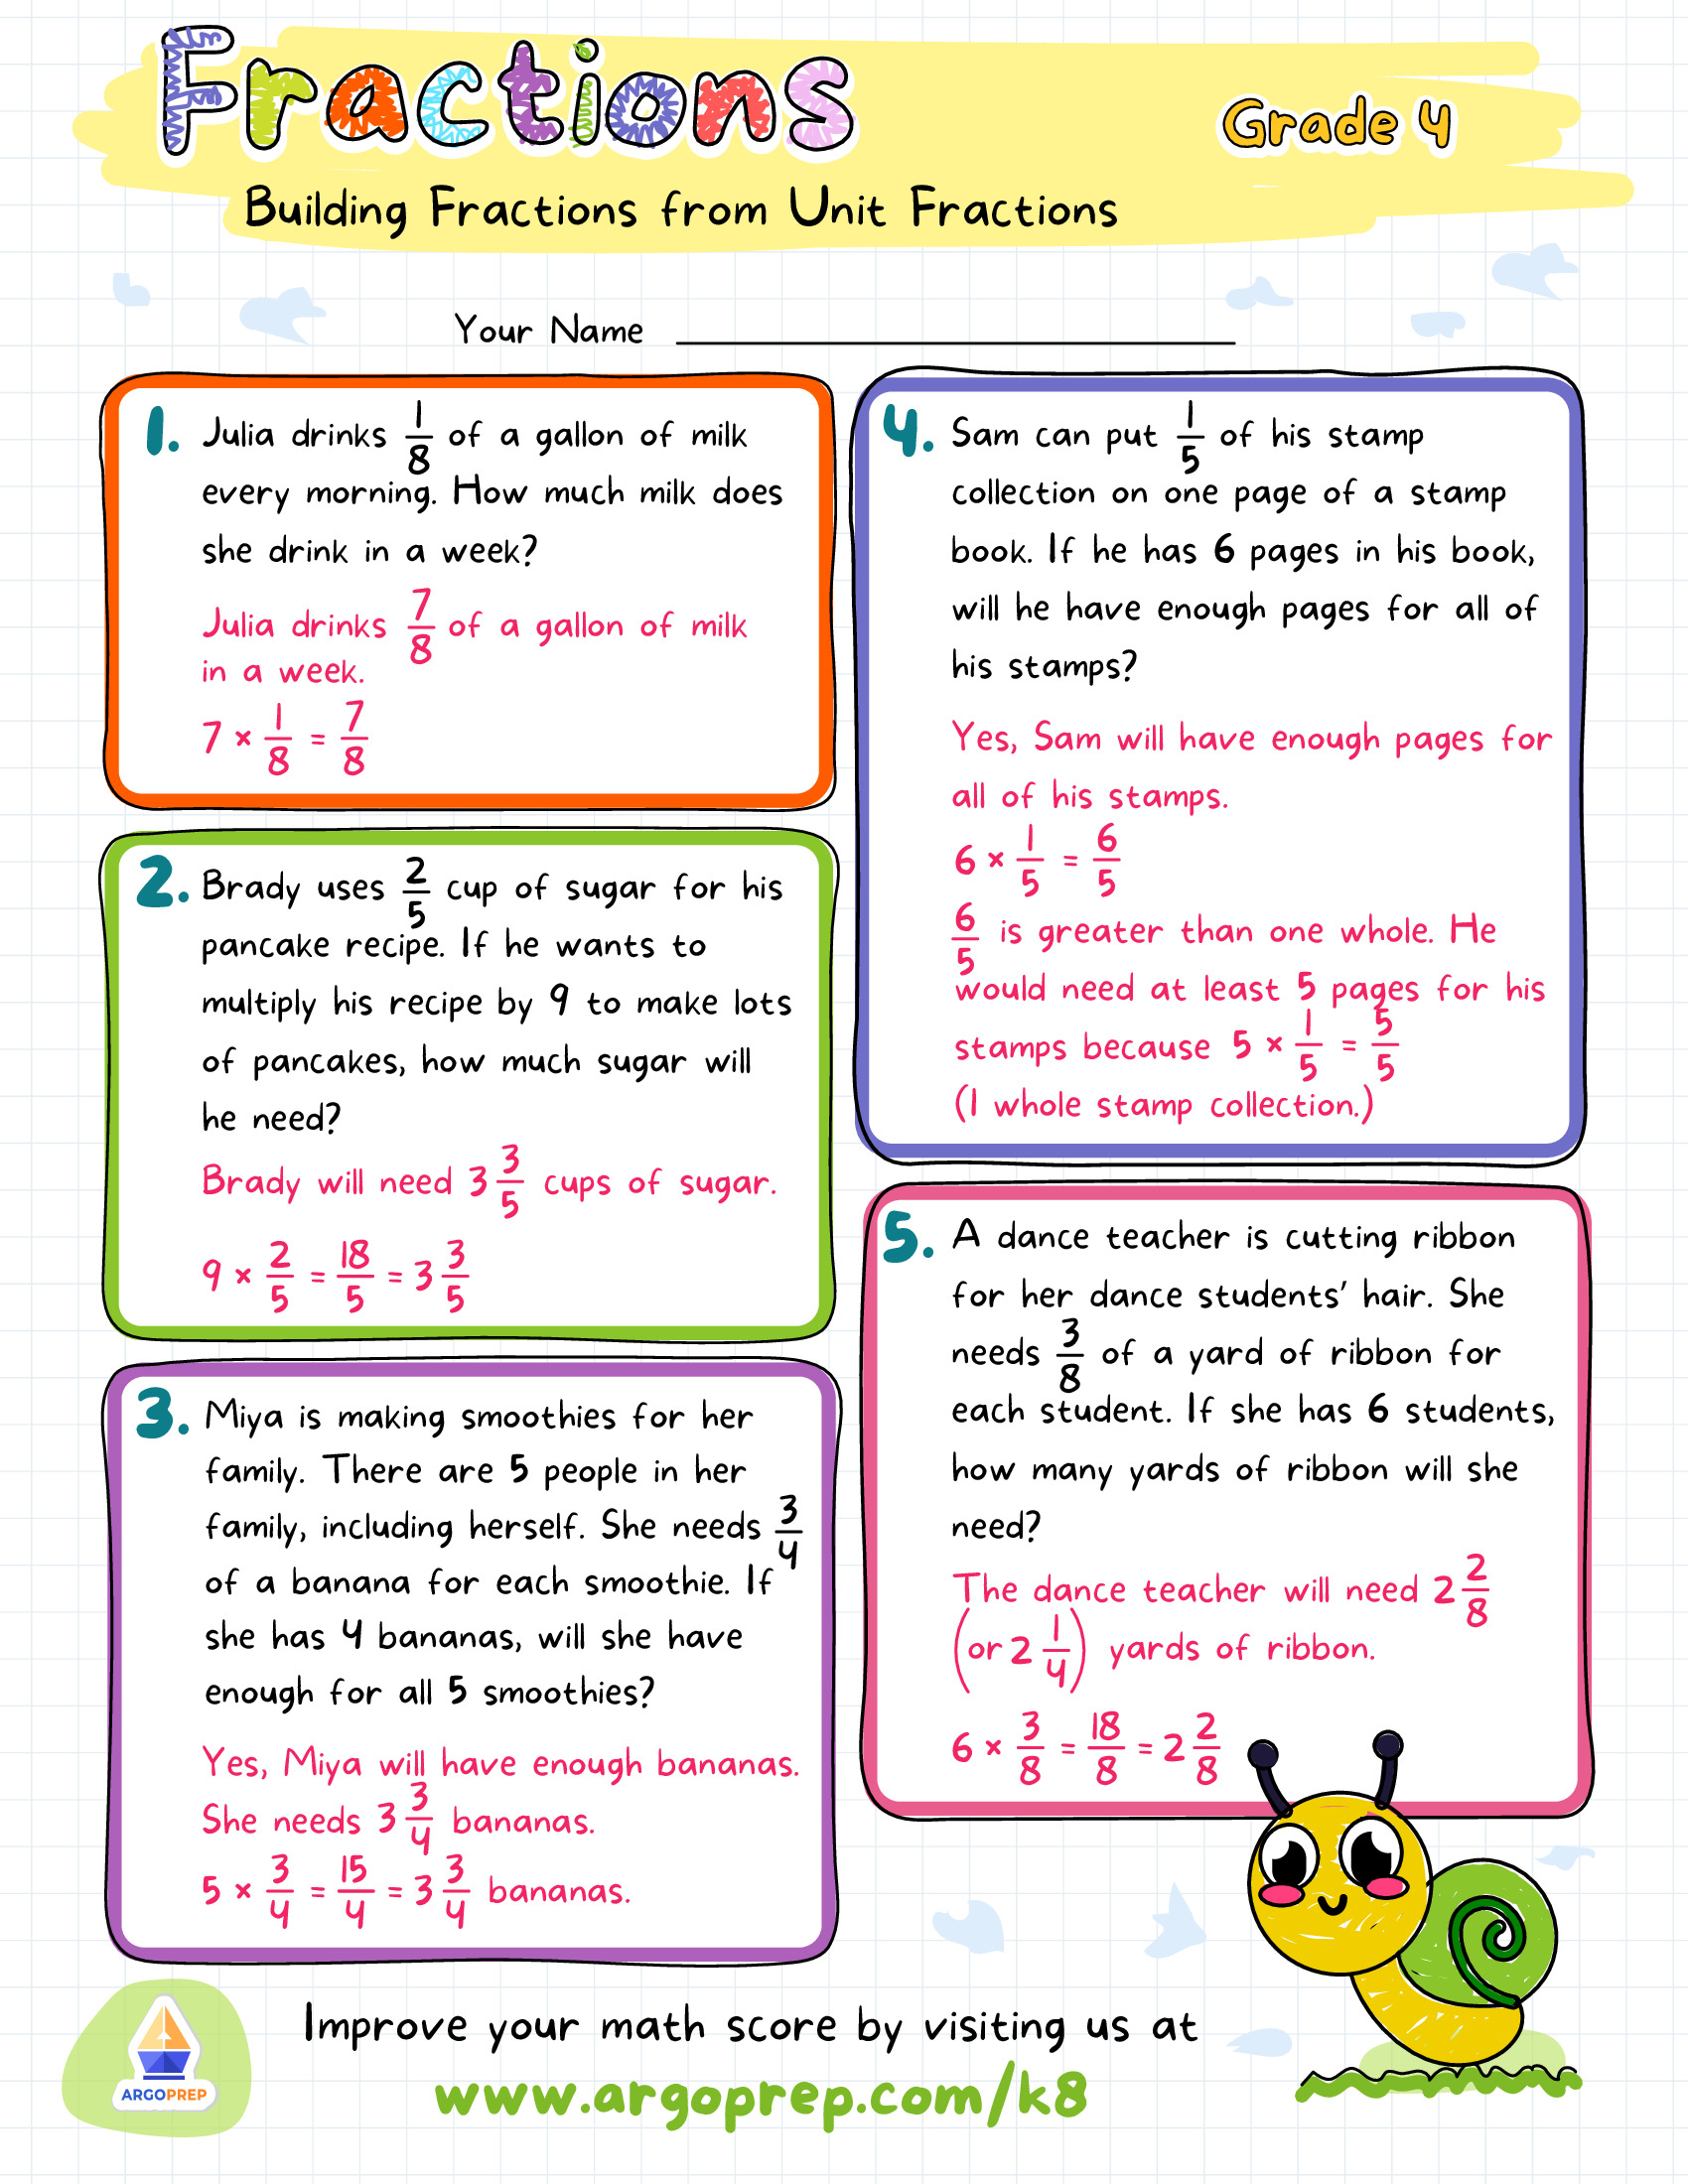 Fractions
Grade 4
Building Fractions from Unit Fractions
Your Name
1. Julia drinks 1/8 of a gallon of milk
every morning. How much milk does
she drink in a week?
Julia drinks 7/8 of a gallon of milk
in a week.
7 × 1/8 = 7/8
2. Brady uses 2/5 cup of sugar for his
pancake recipe. If he wants to
multiply his recipe by 9 to make lots
of pancakes, how much sugar will
he need?
Brady will need 3 3/5 cups of sugar.
9 × 2/5 = 18/5 = 3 3/5
3. Miya is making smoothies for her
family. There are 5 people in her
family, including herself. She needs 3/4
of a banana for each smoothie. If
she has 4 bananas, will she have
enough for all 5 smoothies?
Yes, Miya will have enough bananas.
She needs 3 3/4 bananas.
5 × 3/4 = 15/4 = 3 3/4 bananas.
4. Sam can put 1/5 of his stamp
collection on one page of a stamp
book. If he has 6 pages in his book,
will he have enough pages for all of
his stamps?
Yes, Sam will have enough pages for
all of his stamps.
6 × 1/5 = 6/5
6/5 is greater than one whole. He
would need at least 5 pages for his
stamps because 5 × 1/5 = 5/5
(1 whole stamp collection.)
5. A dance teacher is cutting ribbon
for her dance students' hair. She
needs 3/8 of a yard of ribbon for
each student. If she has 6 students,
how many yards of ribbon will she
need?
The dance teacher will need 2 2/8
(or 2 1/4) yards of ribbon.
6 × 3/8 = 18/8 = 2 2/8
ARGOPREP
Improve your math score by visiting us at
www.argoprep.com/k8